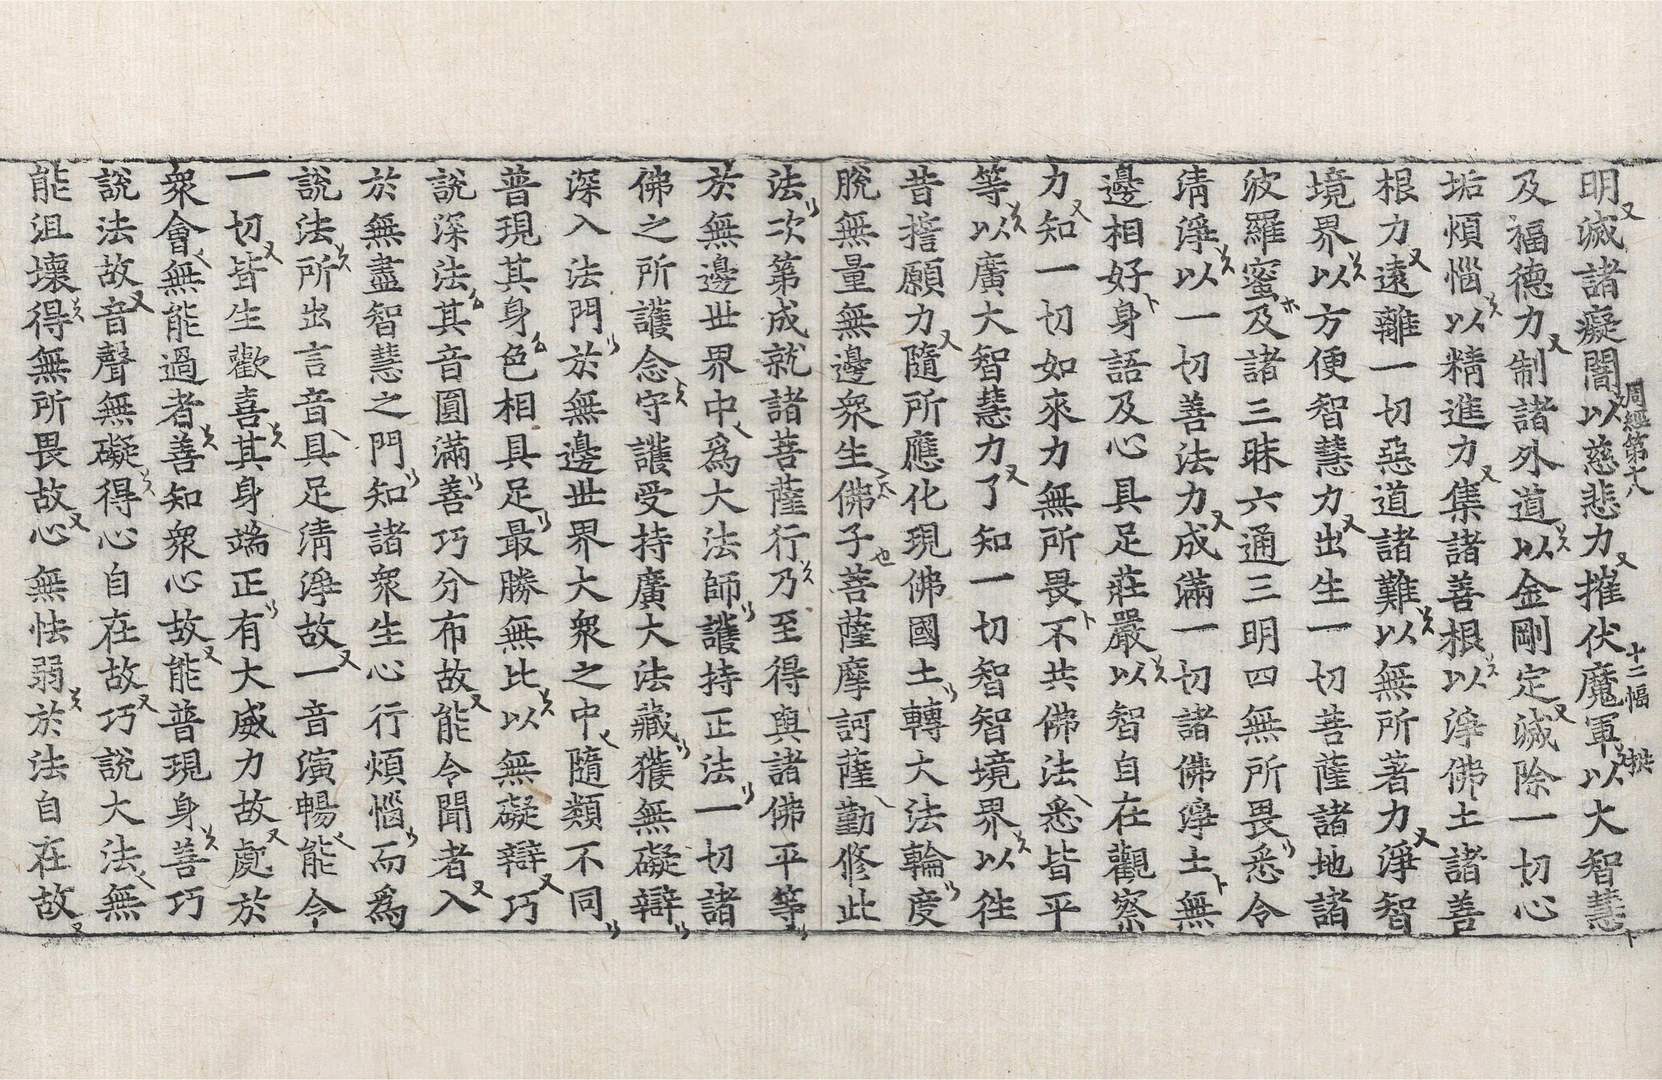 明滅諸癡闇以慈悲力摧伏魔軍以大智慧
及福德力制諸外道以金剛定滅除一切心
垢煩惱以精進力集諸善根以淨佛土諸善
根力遠離一切惡道諸難以無所著力淨智
境界以方便智慧力出生一切菩薩諸地諸
波羅蜜及諸三昧六通三明四無所畏悉令
清淨以一切善法力成滿一切諸佛淨土無
邊相好身語及心具足莊嚴以智自在觀察
力知一切如來力無所畏不共佛法悉皆平
等以廣大智慧力了知一切智智境界以往
昔誓願力隨所應化現佛國土轉大法輪度
脫無量無邊衆生佛子菩薩摩訶薩勤修此
法次第成就諸菩薩行乃至得與諸佛平等
於無邊世界中爲大法師護持正法一切諸
佛之所護念守護受持廣大法藏獲無礙辯
深入法門於無邊世界大衆之中隨類不同
普現其身色相具足最勝無比以無礙辯巧
說深法其音圓滿善巧分布故能令聞者入
於無盡智慧之門知諸衆生心行煩惱而爲
說法所出言音具足清淨故一音演暢能令
一切皆生歡喜其身端正有大威力故處於
衆會無能過者善知衆心故能普現身善巧
說法故音聲無礙得心自在故巧說大法無
能沮壞得無所畏故心無怯弱於法自在故
周經第十八
十二幅